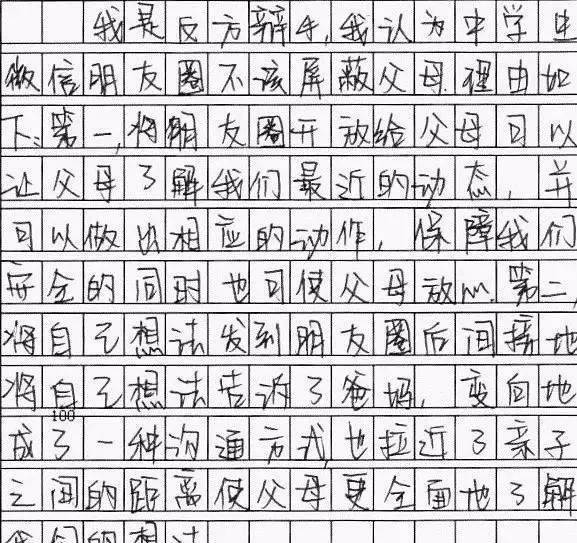 我是反方辩手,我认为中学生
微信朋友圈不该屏蔽父母.理由如
下:第一,将朋友圈开放给父母可以
让父母了解我们最近的动态,并
可以做出相应的动作,保障我们
安全的同时也可使父母放心.第二,
将自己想法发到朋友圈后间接地
将自己想法告诉了爸妈,变向地
100
成了一种沟通方式,也拉近了亲子
之间的距离使父母更全面地了解
我们的想法